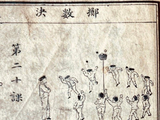 擲數決
第二十課